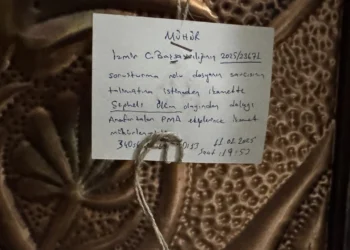 MÜHÜR
İzmir C. Başsavcılığının 2025/23671
soruşturma nolu dosyanın savcının
talimatına istinaden ikamette
Şüpheli Ölüm olayından dolayı
PMA ekiplerince ikamet
mühürlenmiştir
11.02.2025
Saat: 19:53